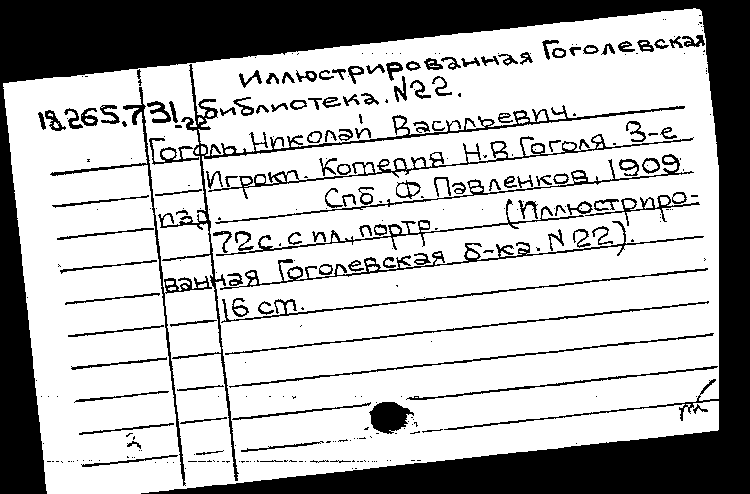 Иллюстрированная Гоголевская
18.265.731-22 библиотека. N22.
Гоголь, Николай Васильевич.
Игроки. Комедия Н.В.Гоголя. 3-е
изд. Спб., Ф. Павленков, 1909
72с. с ил., портр. (Иллюстриро-
ванная Гоголевская б-ка. N22).
16 ст.
2